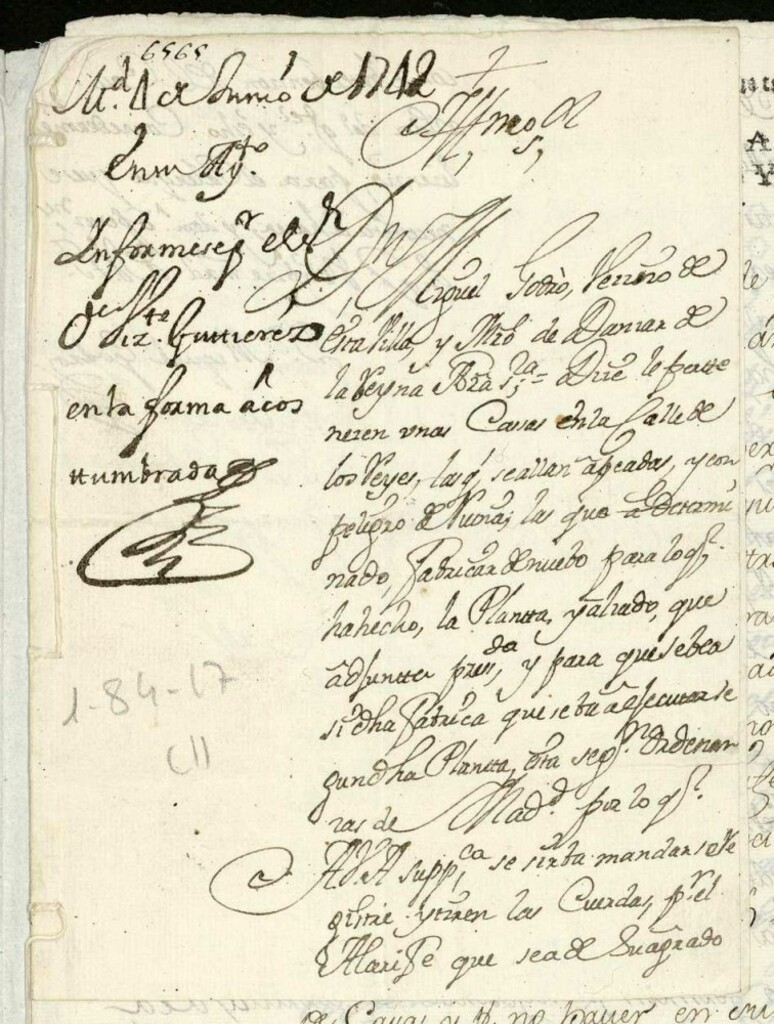 6565
Md. 4 de Junio de 1742
En su Ayto.
Informe se pr. el Sr.
Dn. Vizte. Gutierrez
en la forma acos
ttumbrada
1-84-17
Illmo. Sr.
Dn. Miguel Godro, Vezino de
esta Villa, y Mro. de Damas de
la Reyna Nra. Sra. = Dice le pertte
nezen unas Casas en la Calle de
los Reyes, las q. se allan apeadas, y con
peligro de Ruina; las que a Determi
nado, Fabricar de nuebo para lo q.
ha hecho, la Plantta, y alzado, que
adjuntta presda., y para que se bea
si dha Fabrica que se ba a ejecutar se
gun dha Plantta, esta segn. Ordenan
zas de Madd. por lo q.
A V.I. suppca. se sirba mandar se Re
gistre y tiren las Cuerdas, pr. el
Alarife que sea de su agrado
de Casas y